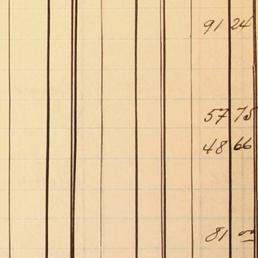 91 24
57 75
48 66
81 00